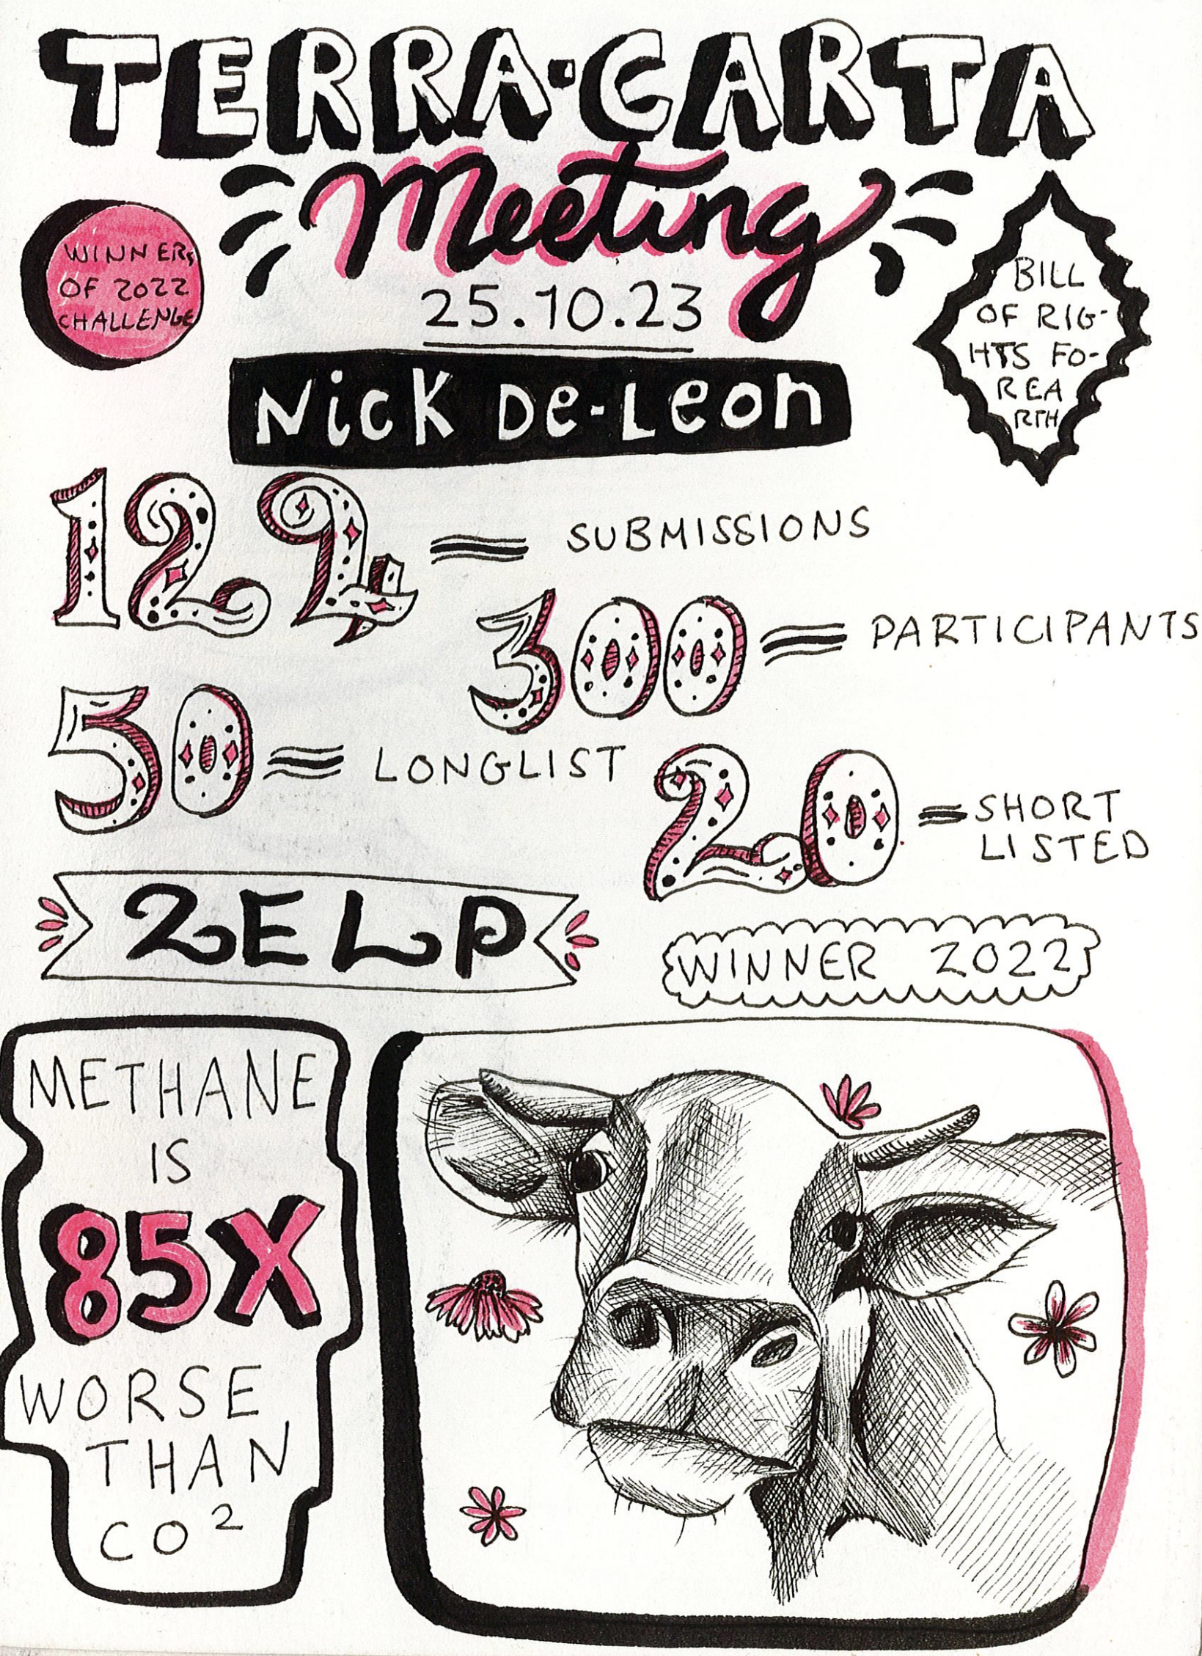 TERRA·CARTA
Meeting
25.10.23
WINNERS
OF 2022
CHALLENGE
BILL
OF RIG-
HTS FO-
REA
RTH
Nick De-Leon
122 = SUBMISSIONS
300 = PARTICIPANTS
50 = LONGLIST
20 = SHORT
LISTED
ZELP
WINNER 2022
METHANE
IS
85X
WORSE
THAN
CO²